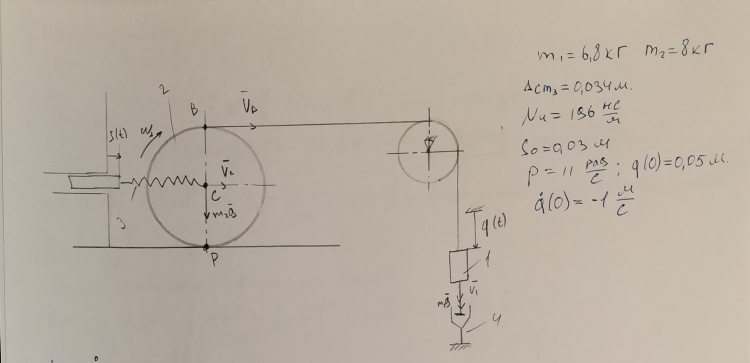 m₁ = 6,8 кг m₂ = 8 кг
Δcm₃ = 0,034 м.
Nu = 196 нс/м
S₀ = 0,03 м
p = 11 рад/с ; q(0) = 0,05 м.
q̇(0) = -1 м/с
2
B
V̄_B
S(t)
ω₂
V̄_c
C
m₂ḡ
3
P
q(t)
1
V̄₁
4